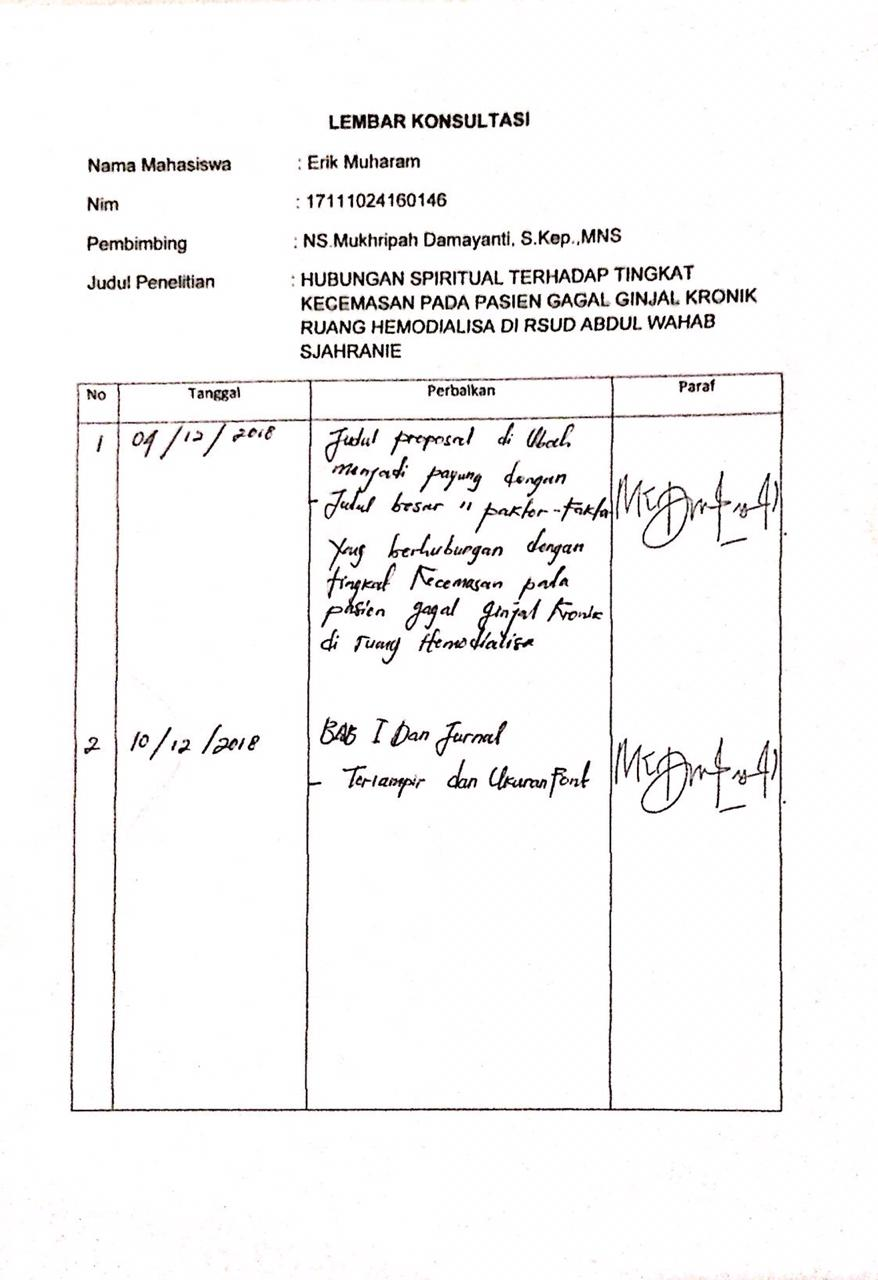 LEMBAR KONSULTASI
Nama Mahasiswa : Erik Muharam
Nim : 17111024160146
Pembimbing : NS.Mukhripah Damayanti, S.Kep.,MNS
Judul Penelitian : HUBUNGAN SPIRITUAL TERHADAP TINGKAT
KECEMASAN PADA PASIEN GAGAL GINJAL KRONIK
RUANG HEMODIALISA DI RSUD ABDUL WAHAB
SJAHRANIE
No Tanggal Perbaikan Paraf
1 04/12/2018 Judul proposal di Ubah
menjadi payung dengan
- Judul besar " paktor-Fakto
Yang berhubungan dengan
tingkat Kecemasan pada
pasien gagal ginjal Kronik
di ruang Hemodialisa
2 10/12/2018 BAB I Dan Jurnal
- Terlampir dan Ukuran Font